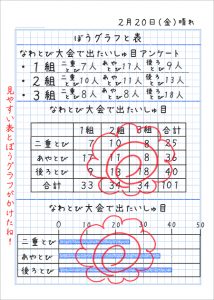 2月20日(金)晴れ
ぼうグラフと表
なわとび大会で出たいしゅ目アンケート
・1組 二重とび7人 あやとび17人 後ろとび9人
・2組 二重とび10人 あやとび11人 後ろとび13人
・3組 二重とび8人 あやとび8人 後ろとび18人
なわとび大会で出たいしゅ目
1組 2組 3組 合計
二重とび 7 10 8 25
あやとび 17 11 8 36
後ろとび 9 13 18 40
合計 33 34 34 101
なわとび大会で出たいしゅ目
0 10 20 30 40 50
二重とび
あやとび
後ろとび
見やすい表とぼうグラフがかけたね!